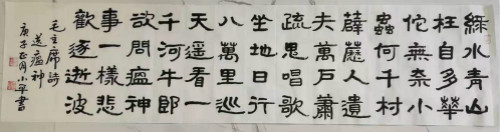 綠水青山
枉自多華
佗無奈小
蟲何千村
薜荔人遺
矢萬戶蕭
疏鬼唱歌
坐地日行
八萬里巡
天遙看一
千河牛郎
欲問瘟神
事一樣悲
歡逐逝波
毛主席詩
送瘟神
庚子正月小平書